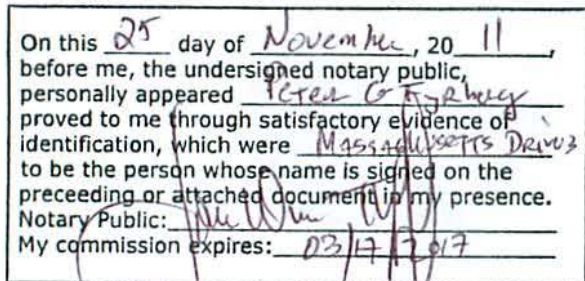 On this 25 day of November, 20 11,
before me, the undersigned notary public,
personally appeared Peter G
proved to me through satisfactory evidence of
identification, which were Massachusetts Drivers
to be the person whose name is signed on the
preceeding or attached document in my presence.
Notary Public:
My commission expires: 03/17/2017